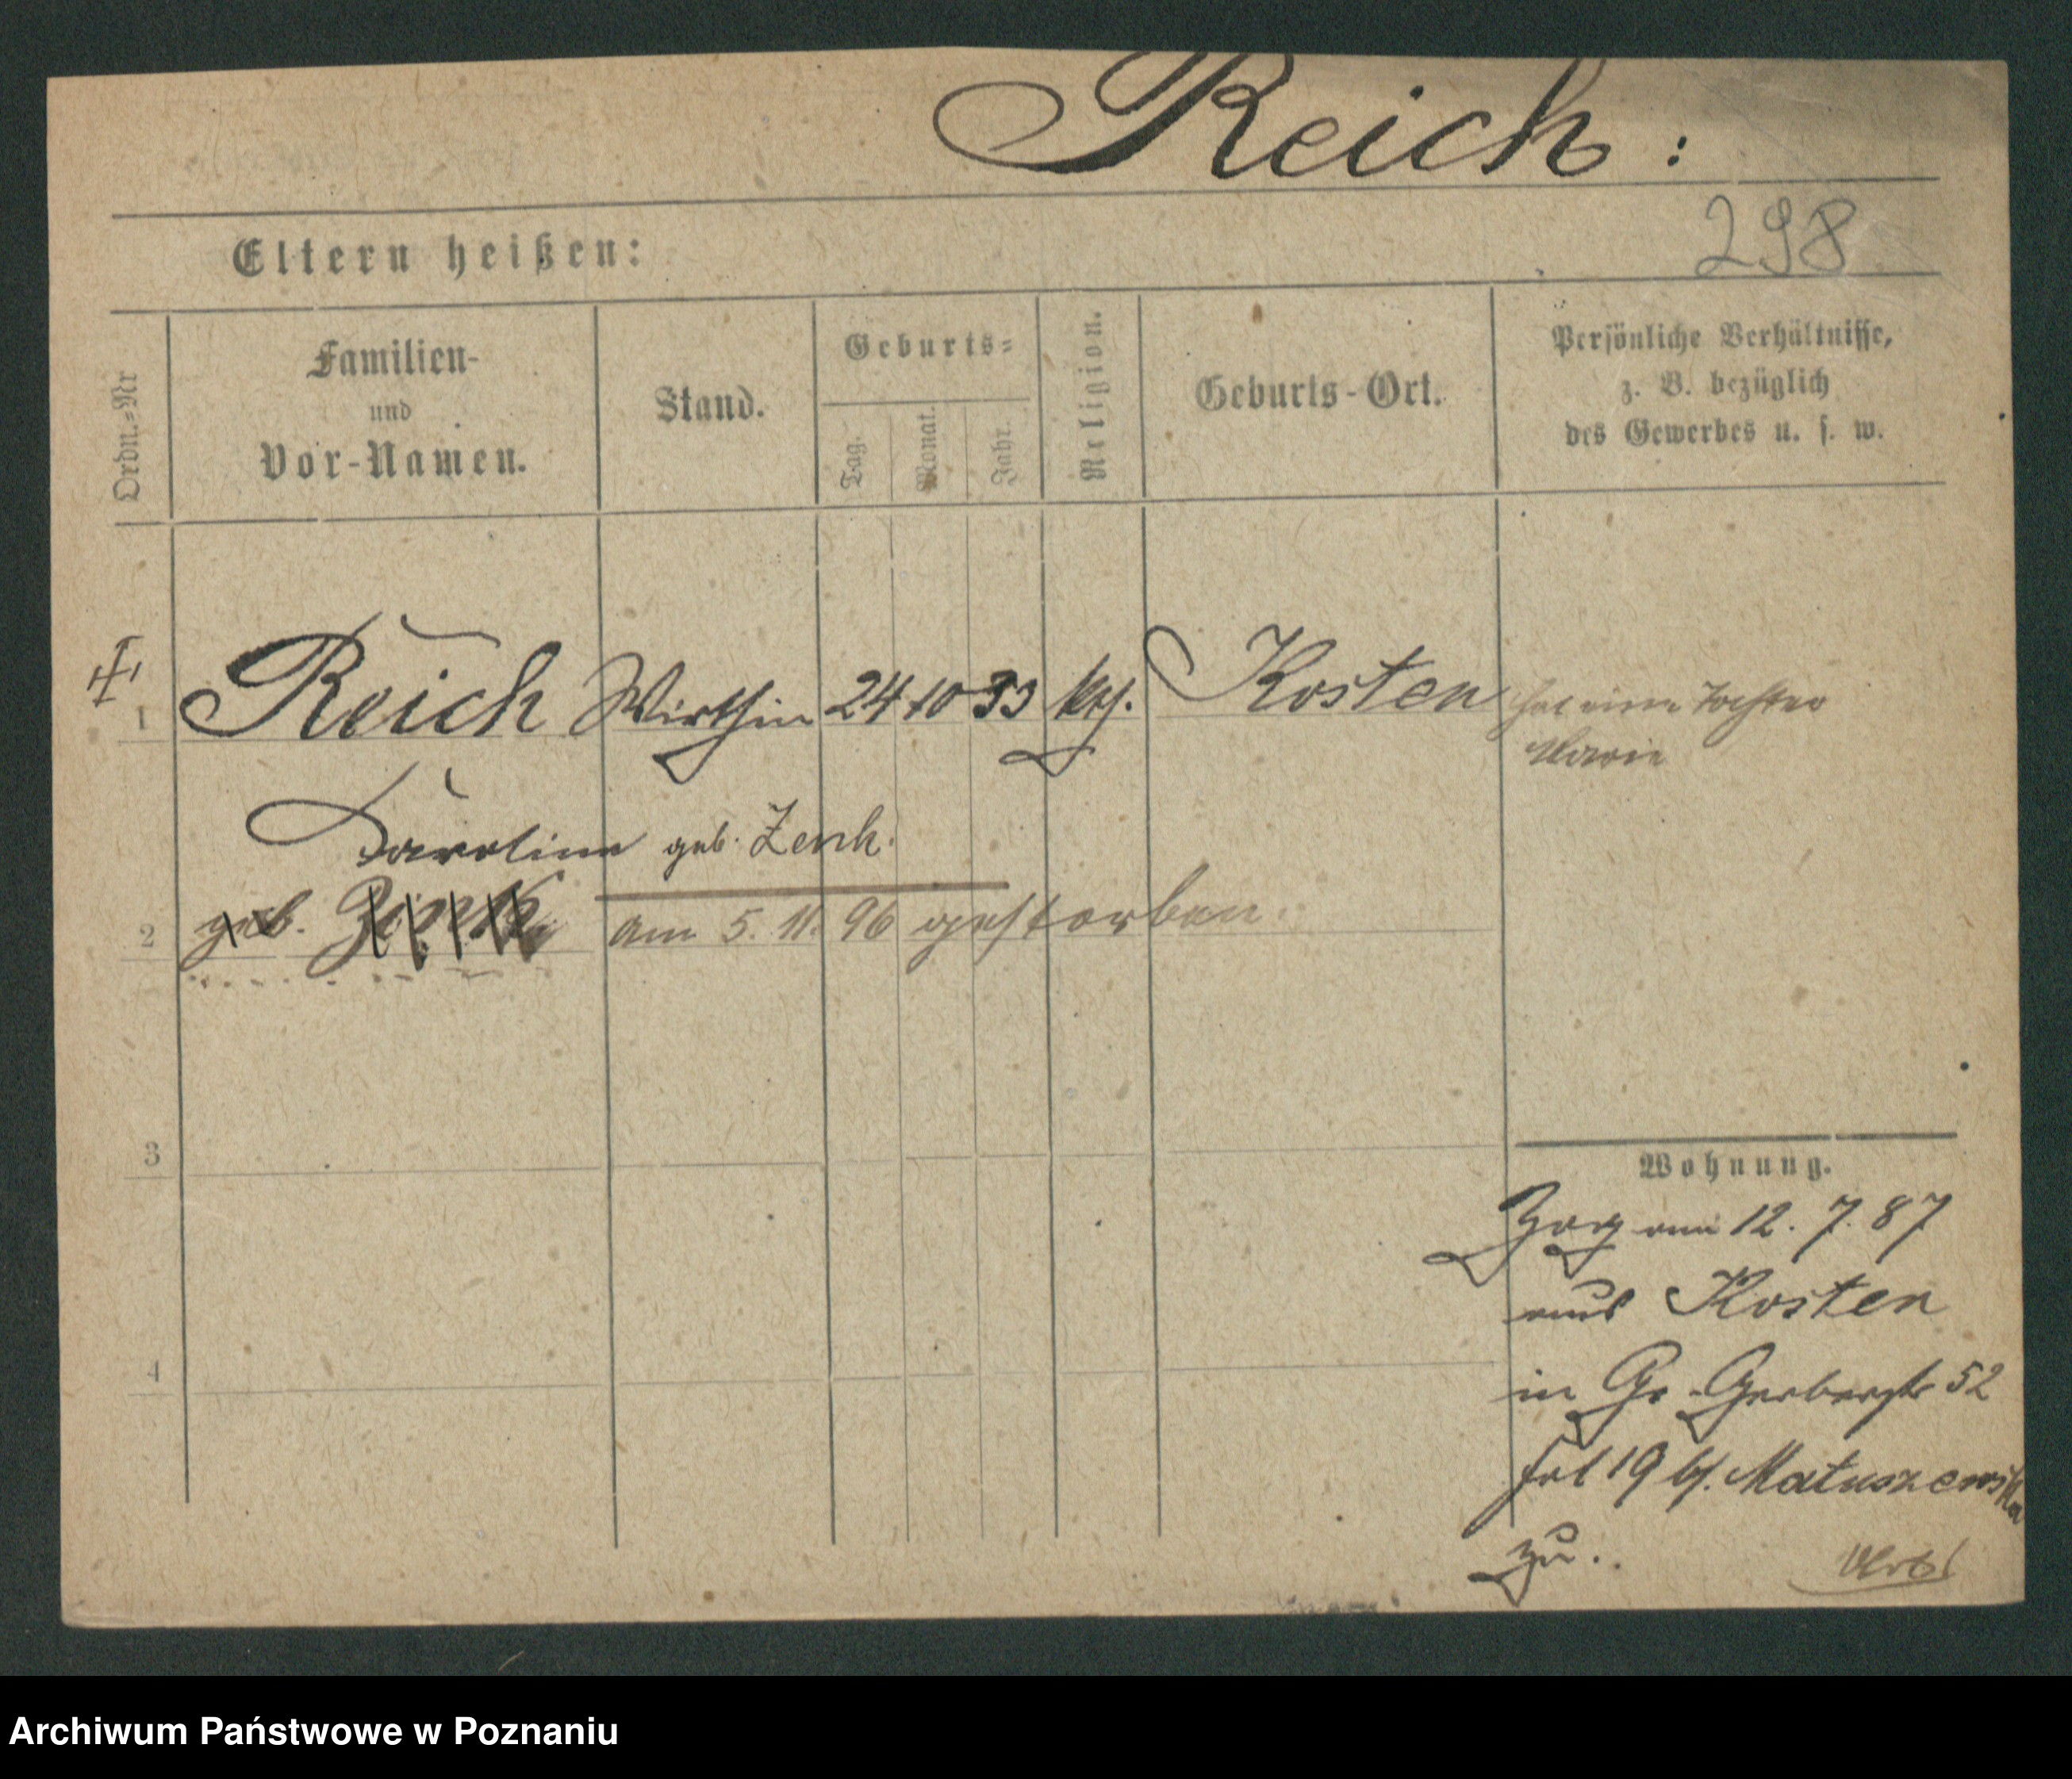 Reich:
298
Eltern heißen:
Ordn.=Nr
Familien-
und
Vor-Namen.
Stand.
Geburts=
Tag.
Monat.
Jahr.
Religion.
Geburts-Ort.
Persönliche Verhältnisse,
z. B. bezüglich
des Gewerbes u. s. w.
1 Reich Wirthin 24 10 33 kth. Kosten hat eine Tochter
Marie
Caroline geb. Zenk.
2 geb. am 5. 11. 96 gestorben.
3
Wohnung.
Zog am 12. 7. 87
aus Kosten
4
in Gr. Gerberstr 52
Hof 19 bei Matuszewska
zu.
Archiwum Państwowe w Poznaniu